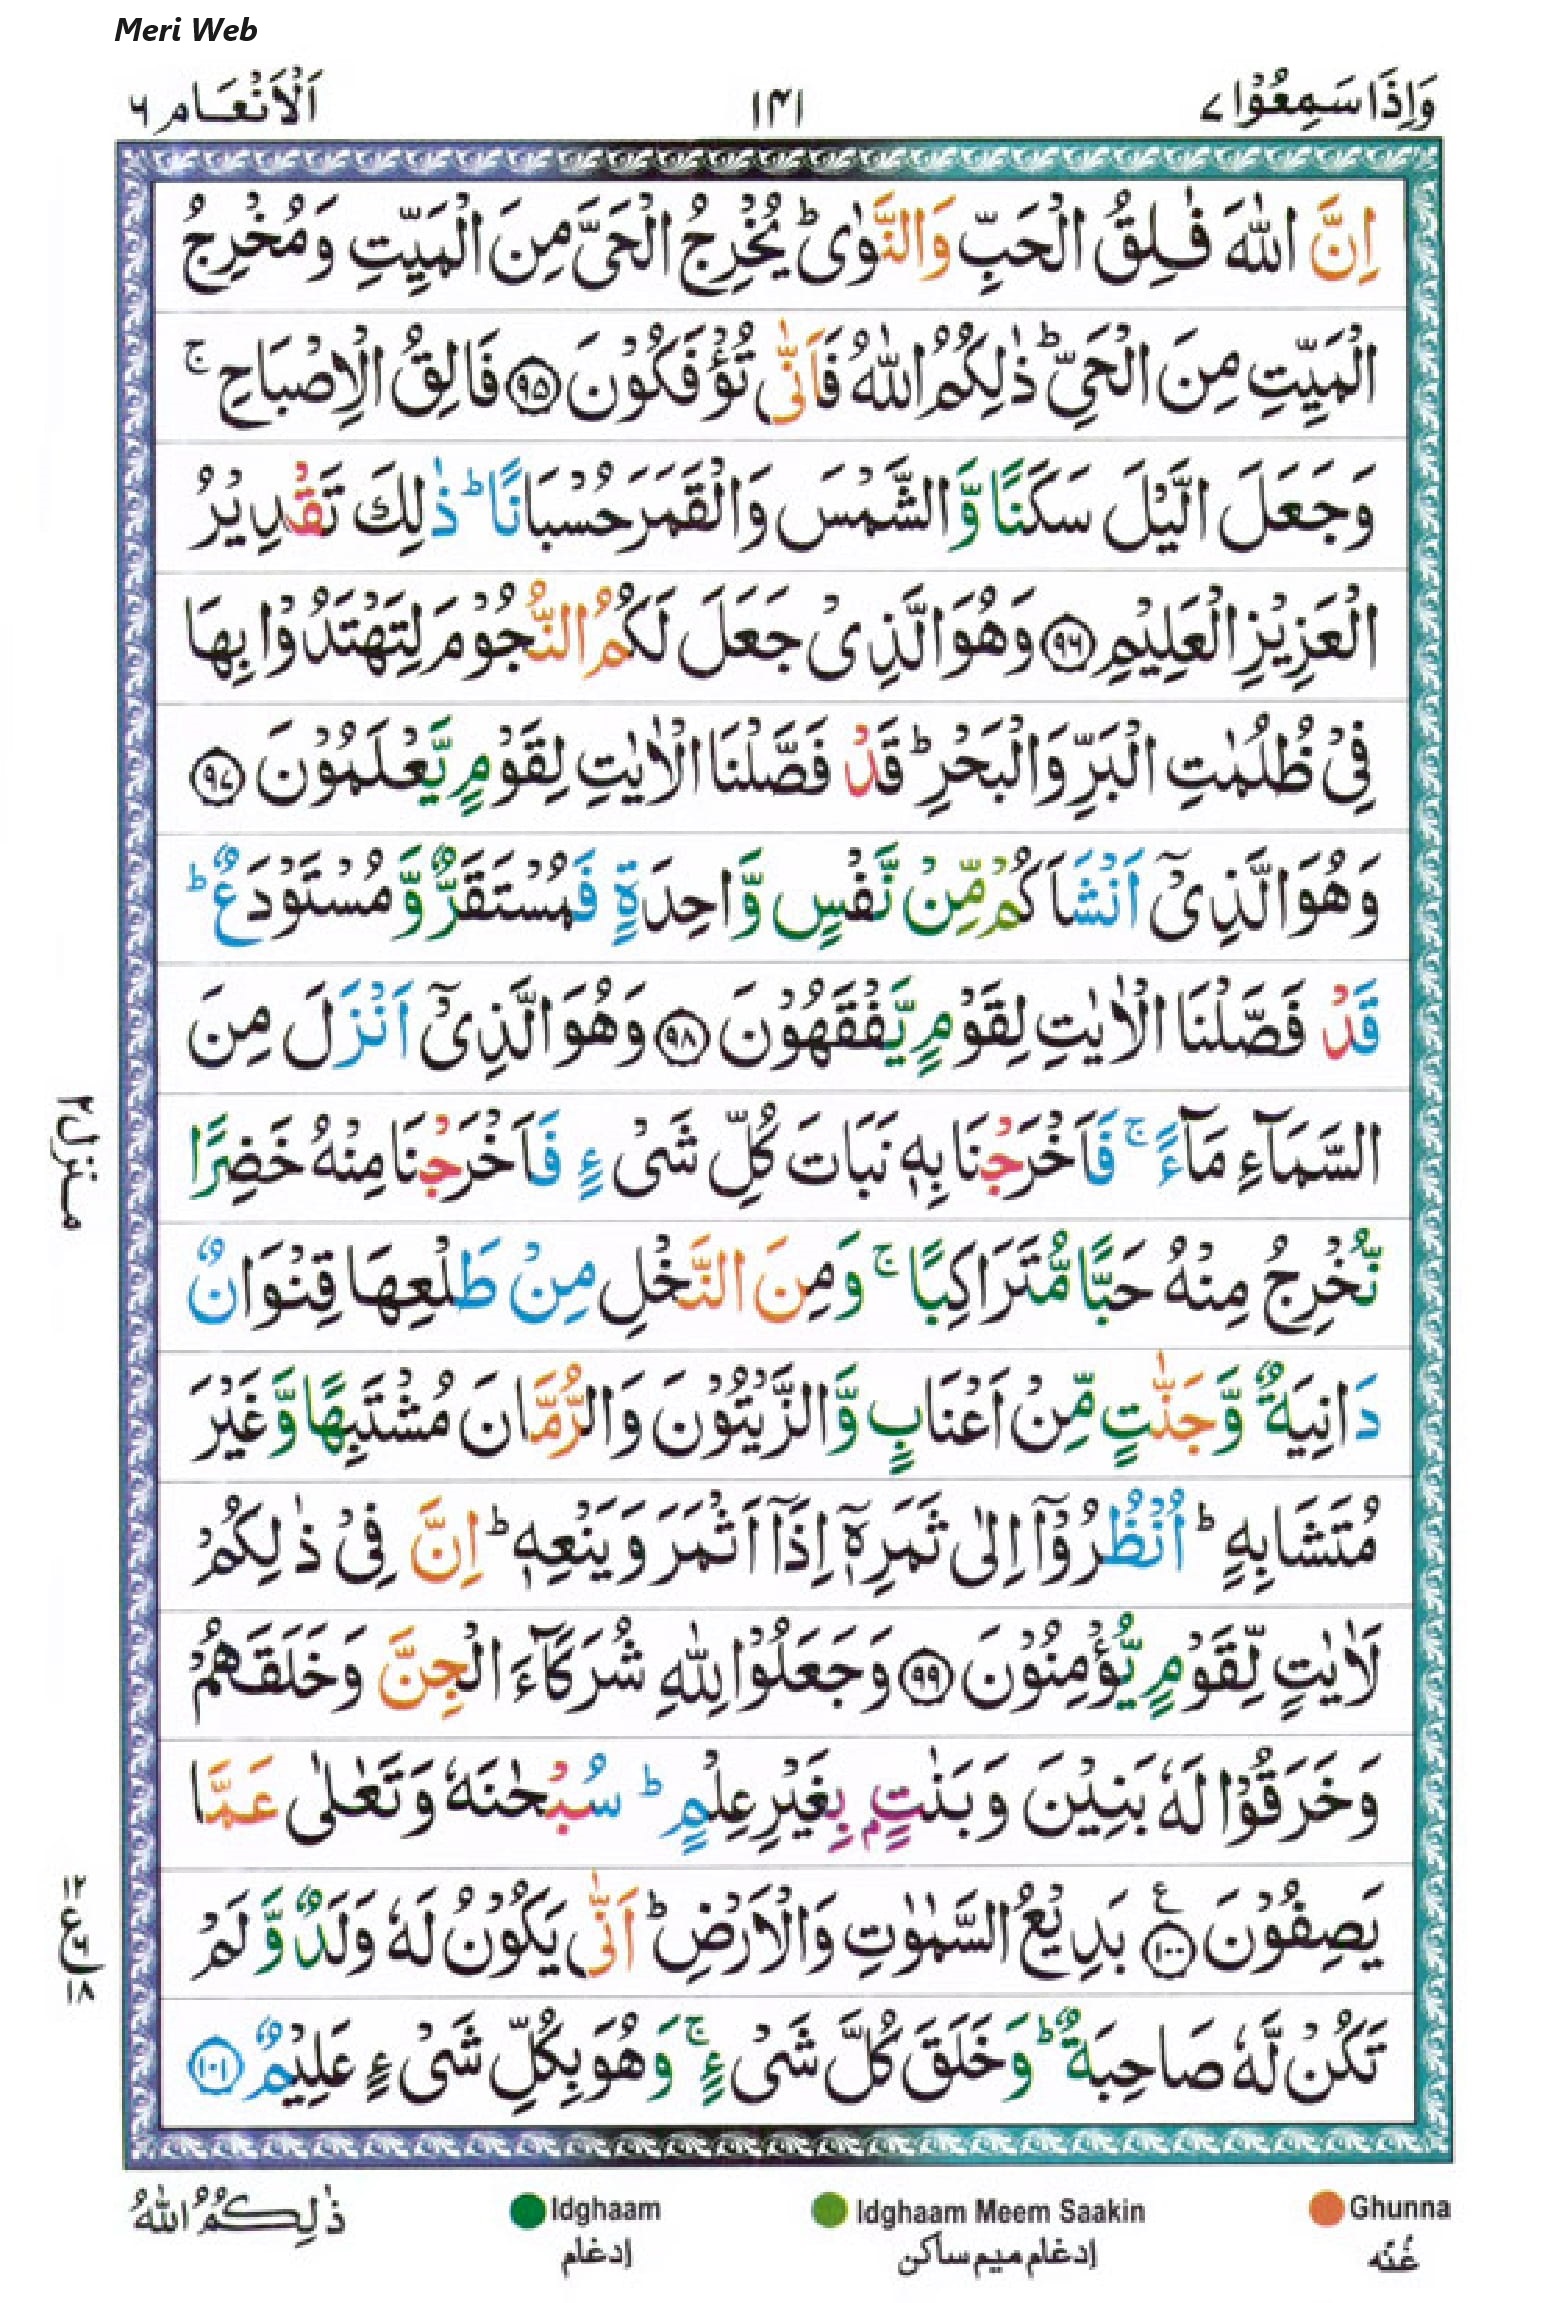 Meri Web
وَاِذَا سَمِعُوْا ۷
۱۴۱
اَلْاَنْعَام ۶
اِنَّ اللّٰهَ فٰلِقُ الْحَبِّ وَالنَّوٰىؕ يُخْرِجُ الْحَىَّ مِنَ الْمَيِّتِ وَمُخْرِجُ
الْمَيِّتِ مِنَ الْحَىِّؕ ذٰلِكُمُ اللّٰهُ فَاَنّٰى تُؤْفَكُوْنَ ۹۵ فَالِقُ الْاِصْبَاحِۚ
وَجَعَلَ الَّيْلَ سَكَنًا وَّالشَّمْسَ وَالْقَمَرَ حُسْبَانًاؕ ذٰلِكَ تَقْدِيْرُ
الْعَزِيْزِ الْعَلِيْمِ ۹۶ وَهُوَ الَّذِىْ جَعَلَ لَكُمُ النُّجُوْمَ لِتَهْتَدُوْا بِهَا
فِىْ ظُلُمٰتِ الْبَرِّ وَالْبَحْرِؕ قَدْ فَصَّلْنَا الْاٰيٰتِ لِقَوْمٍ يَّعْلَمُوْنَ ۹۷
وَهُوَ الَّذِىْۤ اَنْشَاَكُمْ مِّنْ نَّفْسٍ وَّاحِدَةٍ فَمُسْتَقَرٌّ وَّمُسْتَوْدَعٌؕ
قَدْ فَصَّلْنَا الْاٰيٰتِ لِقَوْمٍ يَّفْقَهُوْنَ ۹۸ وَهُوَ الَّذِىْۤ اَنْزَلَ مِنَ
السَّمَآءِ مَآءًۚ فَاَخْرَجْنَا بِهٖ نَبَاتَ كُلِّ شَىْءٍ فَاَخْرَجْنَا مِنْهُ خَضِرًا
نُّخْرِجُ مِنْهُ حَبًّا مُّتَرَاكِبًاۚ وَمِنَ النَّخْلِ مِنْ طَلْعِهَا قِنْوَانٌ
دَانِيَةٌ وَّجَنّٰتٍ مِّنْ اَعْنَابٍ وَّالزَّيْتُوْنَ وَالرُّمَّانَ مُشْتَبِهًا وَّغَيْرَ
مُتَشَابِهٍؕ اُنْظُرُوْۤا اِلٰى ثَمَرِهٖۤ اِذَاۤ اَثْمَرَ وَيَنْعِهٖؕ اِنَّ فِىْ ذٰلِكُمْ
لَاٰيٰتٍ لِّقَوْمٍ يُّؤْمِنُوْنَ ۹۹ وَجَعَلُوْا لِلّٰهِ شُرَكَآءَ الْجِنَّ وَخَلَقَهُمْ
وَخَرَقُوْا لَهٗ بَنِيْنَ وَبَنٰتٍۢ بِغَيْرِ عِلْمٍؕ سُبْحٰنَهٗ وَتَعٰلٰى عَمَّا
يَصِفُوْنَ ۱۰۰ بَدِيْعُ السَّمٰوٰتِ وَالْاَرْضِؕ اَنّٰى يَكُوْنُ لَهٗ وَلَدٌ وَّلَمْ
تَكُنْ لَّهٗ صَاحِبَةٌؕ وَخَلَقَ كُلَّ شَىْءٍۚ وَهُوَ بِكُلِّ شَىْءٍ عَلِيْمٌ ۱۰۱
منزل۲
۱۲
ع
۶
۱۸
Ghunna
غُنّه
Idghaam Meem Saakin
إدغام ميم ساكن
Idghaam
إدغام
ذٰلِكُمُ اللّٰهُ